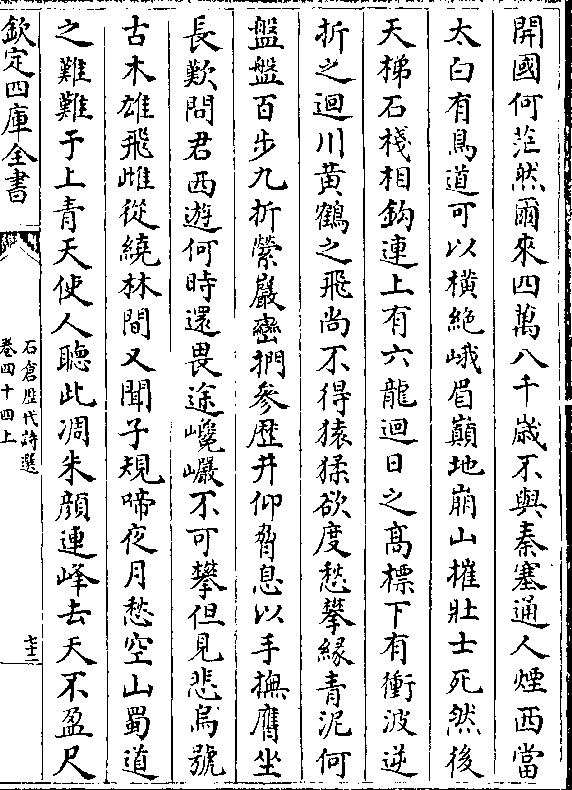 開國何茫然爾來四萬八千歲不與秦塞通人煙西當
太白有鳥道可以橫絶峨眉巔地崩山摧壯士死然後
天梯石棧相鈎連上有六龍迴日之髙標下有衝波逆
折之迴川黃鶴之飛尚不得猿猱欲度愁攀緣青泥何
盤盤百步九折縈巖巒捫參歷井仰脅息以手撫膺坐
長歎問君西遊何時還畏途巉巖不可攀但見悲鳥號
古木雄飛雌從繞林間又聞子規啼夜月愁空山蜀道
之難難于上青天使人聽此凋朱顔連峰去天不盈尺
欽定四庫全書
石倉歷代詩選
卷四十四上